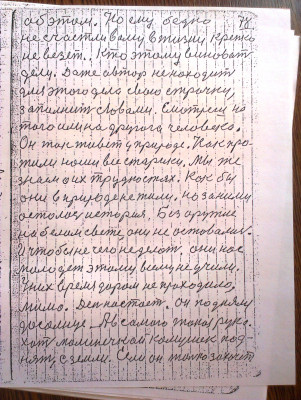 об этом. Но ему бедно 78
не счастливому в жизни крепко
не везет. Кто этому виноват
дели. Даже автор не находит
для этого дела свою строчку,
заполнит словами. Смотрели на
того или на другога человека.
Он так живет у природе. Как про-
жили наши все старики. Мы же
знаем о их трудностях. Как бы
они в природе не жили, но за ними
осталась история. Без оружие
на белом свете, они не оставались.
И чтобы не чего не делат, они нас
молодеж этому всему не учили.
У них время даром не проходило,
мимо. Ден настает. Он подняли
до солнце. А в самого тока рук.
хот малинечкай камушек под
нять, с земли. Сам он только захочет